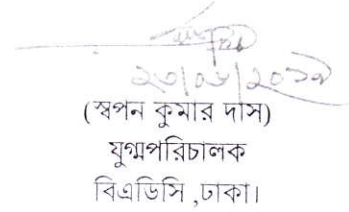 ২৩/০৬/২০১৯
(স্বপন কুমার দাস)
যুগ্মপরিচালক
বিএডিসি ,ঢাকা।